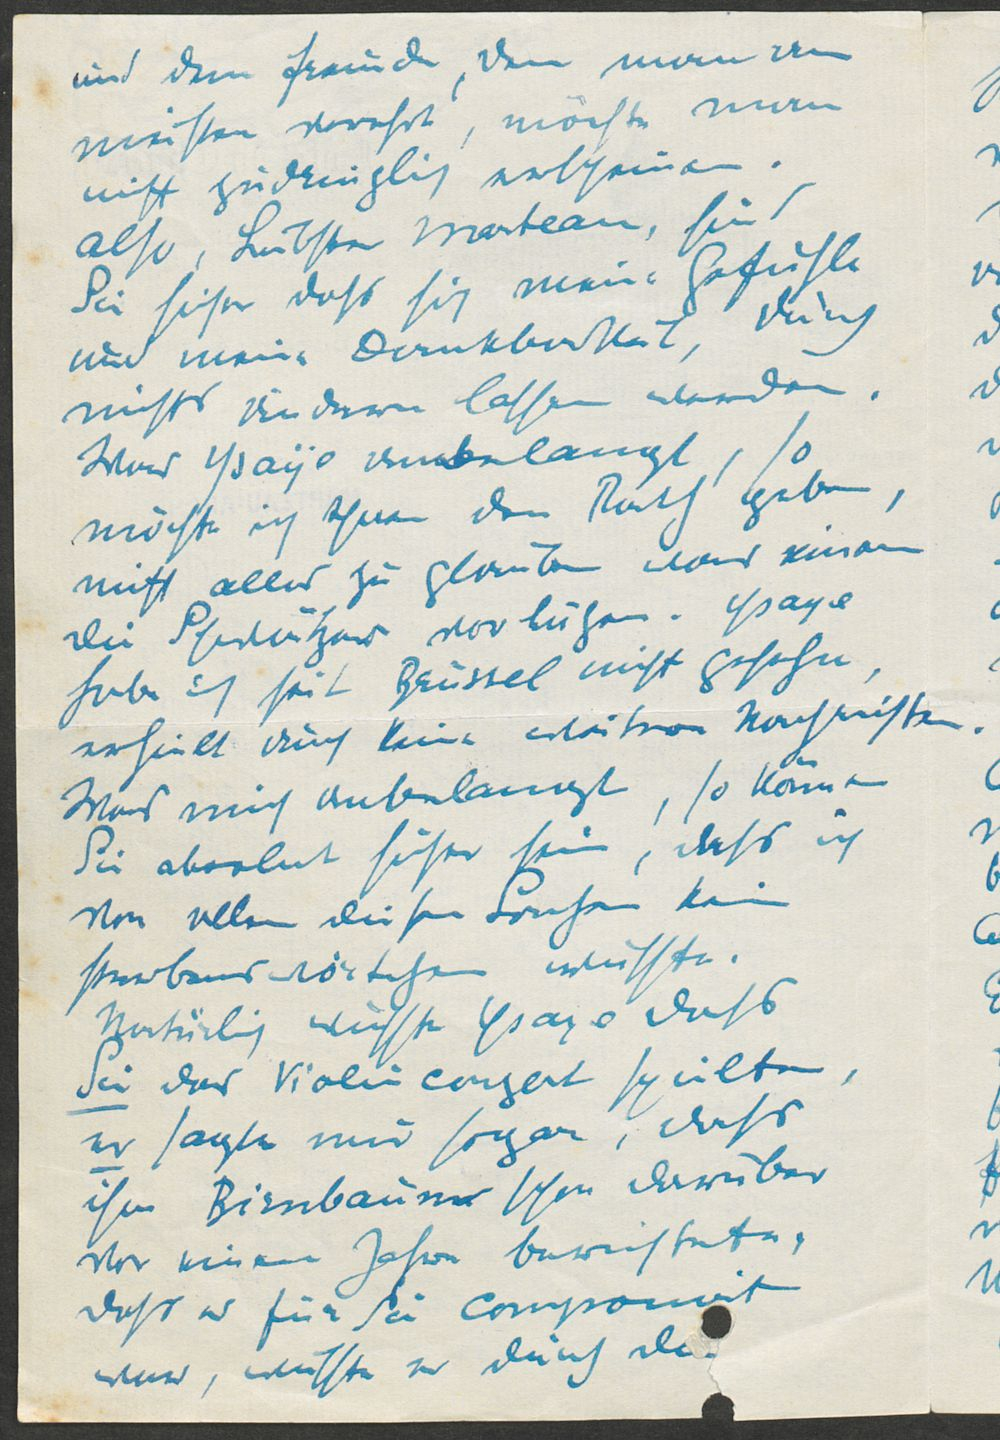 und dem Freunde, den man am
meisten verehrt, möchte man
nicht zudringlich erscheinen.
Also, Liebster Marteau, sind
Sie sicher dass sich meine Gefühle
und meine Dankbarkeit, durch
nichts ändern lassen werden.
Was Ysaÿe anbelangt, so
möchte ich Ihnen den Rath geben,
nicht alles zu glauben was einem
die Schwätzer vorlügen. Ysaye
habe ich seit Brüssel nicht gesehn,
erhielt auch keine weitren Nachrichten.
Was mich anbelangt, so können
Sie absolut sicher sein, dass ich
von allen diesen Sachen kein
sterbenswörtchen wusste.
Natürlich wusste Ysaye dass
Sie das Violinconzert spielten,
er sagte mir sogar, dass
ihm Birnbaum schon darüber
vor einem Jahre berichtete,
dass es für Sie componirt
war, wusste er durch